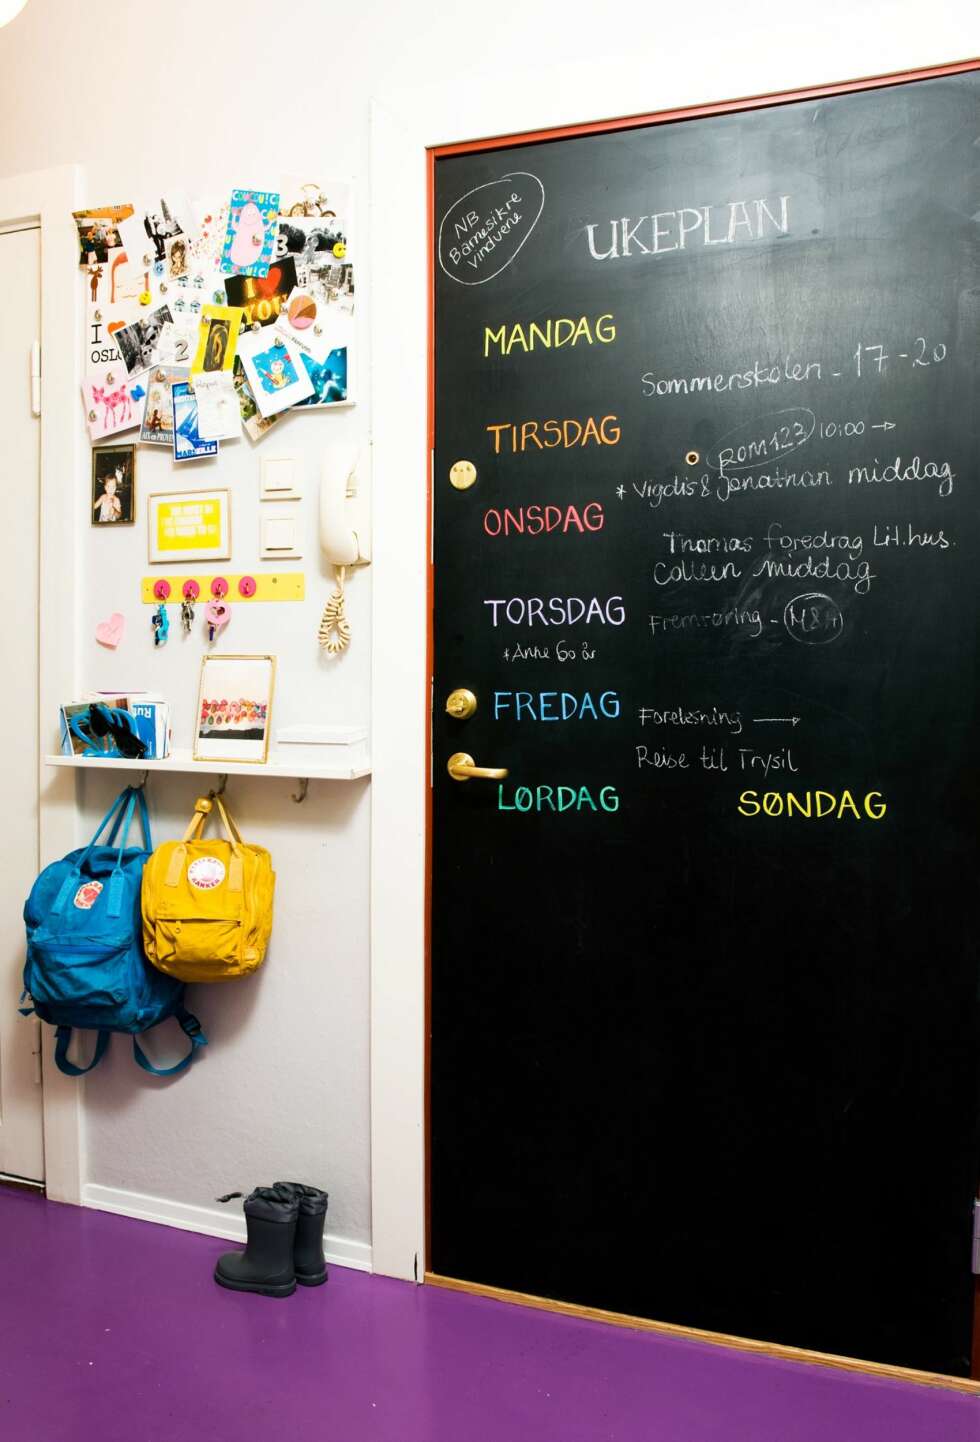 NB
Barnesikre
vinduene
UKEPLAN
MANDAG
Sommerskolen - 17 - 20
TIRSDAG
ROM 123 10:00 →
* Vigdis & Jonathan middag
ONSDAG
Thomas foredrag Lit.hus.
Colleen middag
TORSDAG
Fremføring - M&H
* Anne 60 år
FREDAG
Forelesning →
Reise til Trysil
LØRDAG
SØNDAG
COUCOU!
3
I
YOU
I
OSLO
2
AIX-EN-PROVENCE
MARSEILLE
KÅNKEN